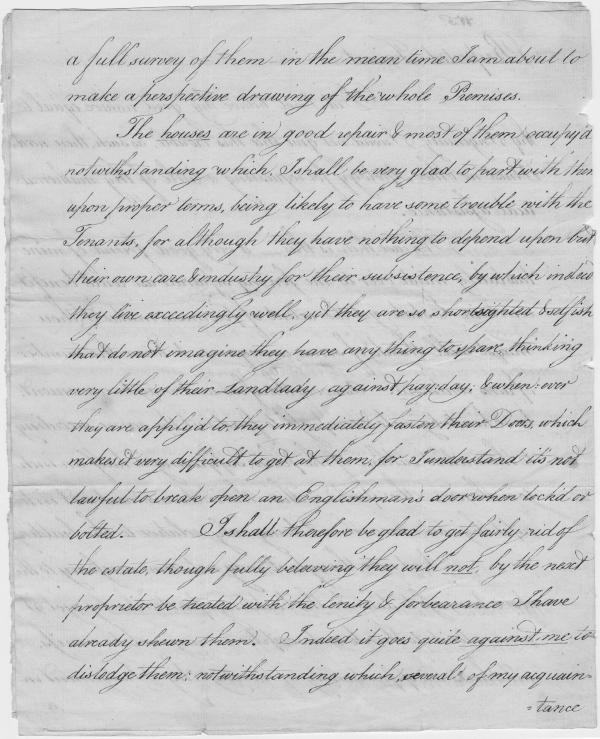 a full survey of them in the mean time I am about to
make a perspective drawing of the whole Premises.
The houses are in good repair & most of them occupy'd
notwithstanding which, I shall be very glad to part with them
upon proper terms, being likely to have some trouble with the
Tenants, for although they have nothing to depend upon but
their own care & industry for their subsistence, by which indeed
they live exceedingly well, yet they are so shortsighted & selfish
that do not imagine they have any thing to spare, thinking
very little of their Landlady against pay-day; & when-ever
they are apply'd to, they immediately fasten their Doors, which
makes it very difficult to get at them, for I understand it's not
lawful to break open an Englishman's door when lock'd or
bolted. I shall therefore be glad to get fairly rid of
the estate, though fully beleiving they will not, by the next
proprietor be treated with the lenity & forbearance I have
already shewn them. Indeed it goes quite against me to
dislodge them; notwithstanding which, several of my acquain=
=tance